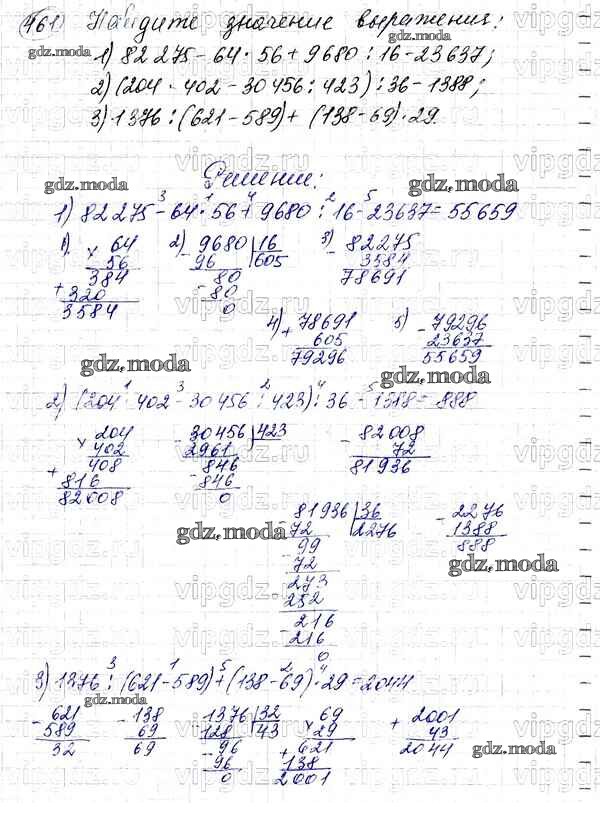 461) Найдите значение выражения:
1) 82 275 - 64 · 56 + 9680 : 16 - 23637;
2) (204 · 402 - 30456 : 423) : 36 - 1388;
3) 1376 : (621 - 589) + (138 - 69) · 29.
Решение:
gdz.moda
gdz.moda
3 1 4 2 5
1) 82 275 - 64 · 56 + 9680 : 16 - 23637 = 55659
1) × 64 2) 9680 | 16 3) - 82275
56 - 96 605 3584
384 80 78691
+ 320 - 80
3584 0
4) + 78691 5) - 79296
605 23637
79296 55659
gdz.moda
gdz.moda
1 3 2 4 5
2) (204 · 402 - 30456 : 423) : 36 - 1388 = 888
× 204 - 30456 | 423 - 82008
402 2961 72 72
408 - 846 81936
+ 816 846
82008 0
81936 | 36 - 2276
- 72 2276 1388
99 888
- 72
273
- 252
216
- 216
0
gdz.moda
gdz.moda
3 1 5 2 4
3) 1376 : (621 - 589) + (138 - 69) · 29 = 2044
gdz.moda
- 621 - 138 - 1376 | 32 × 69 + 2001
589 69 128 43 29 43
32 69 - 96 + 621 2044
96 138
0 2001
gdz.moda